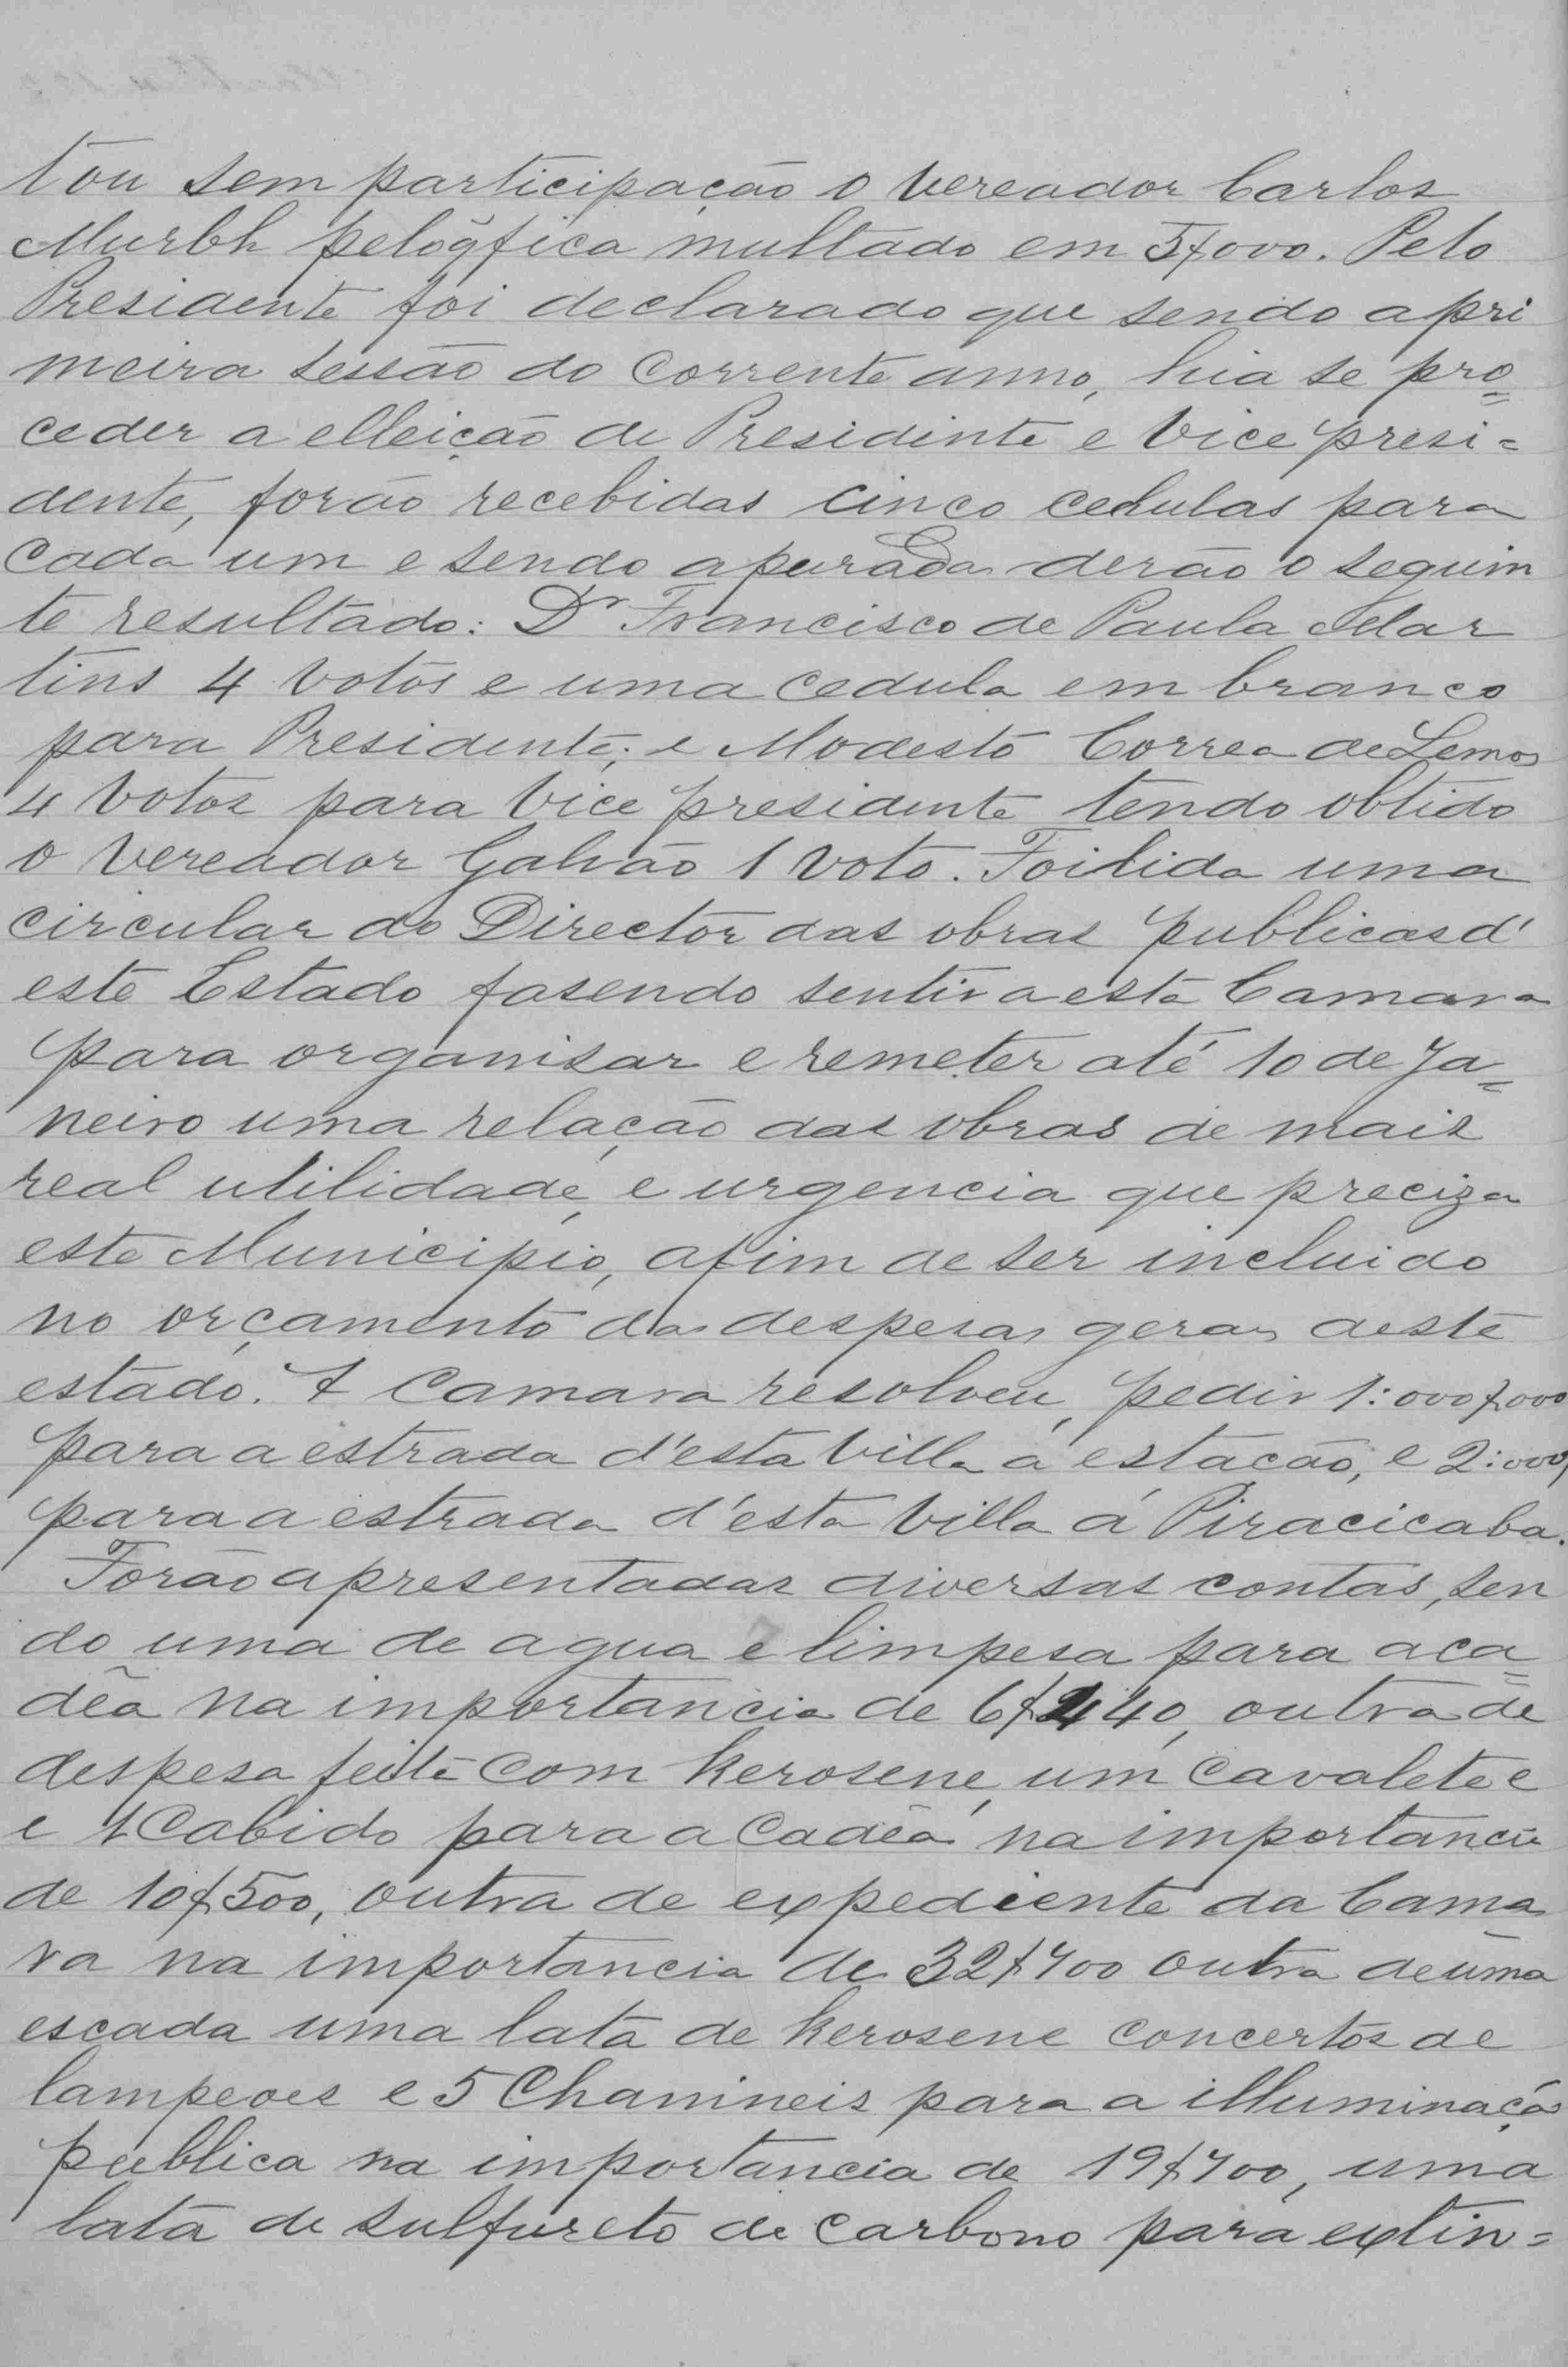 tou sem participação o vereador Carlos
Murbh pelo q̃ fica multado em 5$000. Pelo
Presidente foi declarado que sendo a pri
meira sessão do corrente anno, hia se pro=
ceder a elleição de Presidente e Vice presi=
dente, forão recebidas cinco cedulas para
cada um e sendo apurada derão o seguin
te resultado: Dr Francisco de Paula Mar
tins 4 votos e uma cedula em branco
para Presidente; e Modesto Correa de Lemos
4 votos para Vice presidente tendo obtido
o vereador Galvão 1 voto. Foi lida uma
circular do Director das obras publicas d'
este Estado fasendo sentir a esta Camara
para organisar e remeter até 10 de Ja=
neiro uma relação das obras de mais
real utilidade, e urgencia que preciza
este Municipio, afim de ser incluido
no orçamento das despesas geraes deste
estado. A Camara resolveu, pedir 1:000$000
para a estrada d'esta Villa á estação, e 2:000$
para a estrada d'esta Villa á Piracicaba.
Forão apresentadas diversas contas, sen
do uma de agua e limpesa para a ca=
dêa na importancia de 6$440, outra de
despesa feita com kerosene, um cavalete e
e 1 Cabido para a Cadêa na importancia
de 10$500, outra de expediente da Cama
ra na importancia de 32$700 outra de uma
escada uma lata de kerosene concertos de
lampeoes e 5 Chamineis para a illuminação
publica na importancia de 19$700, uma
lata de sulfureto de carbono para extin=